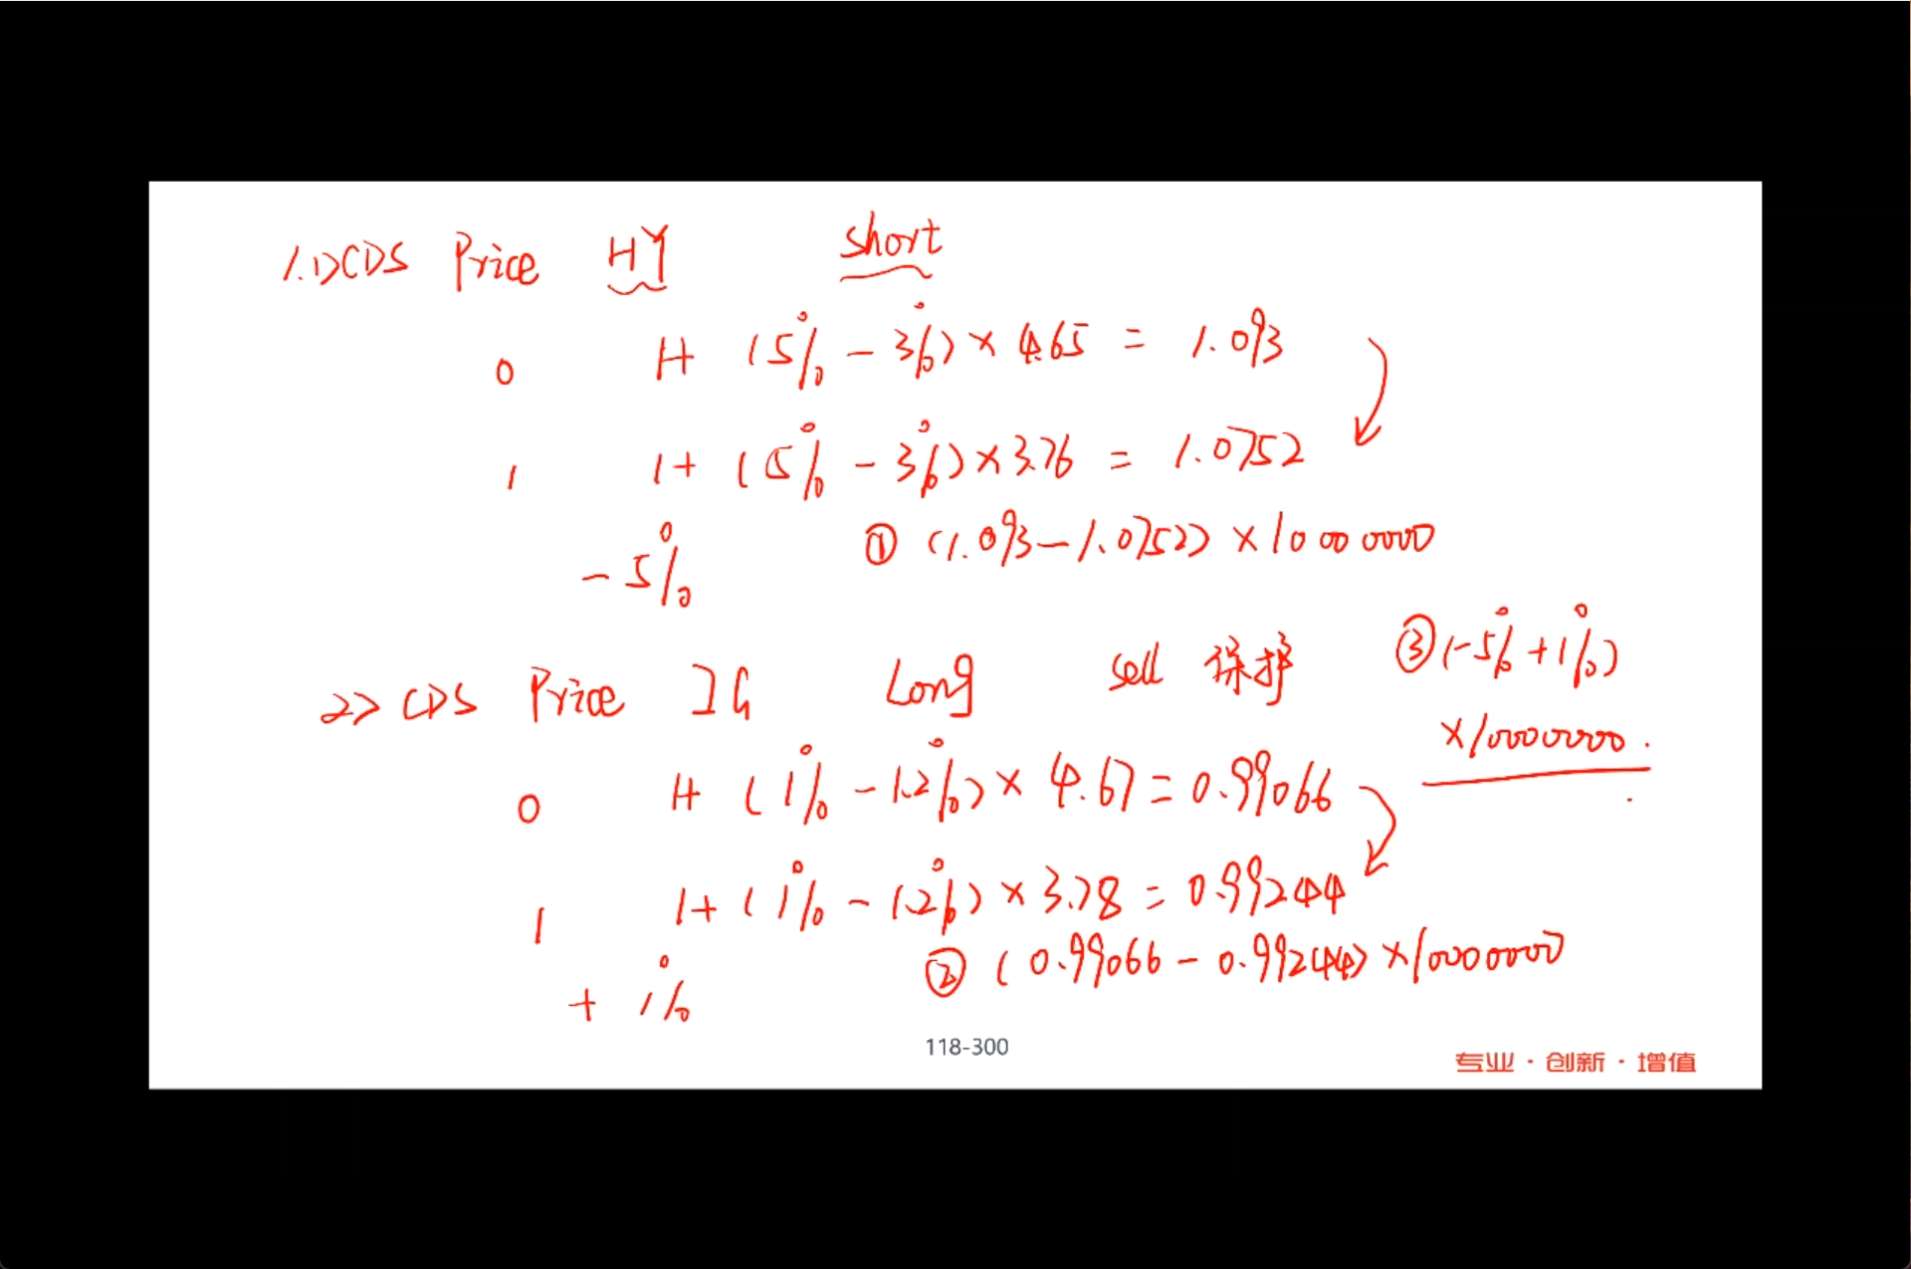 1.1>CDS Price HY short
0 1+ (5% - 3%) × 4.65 = 1.093
1 1+ (5% - 3%) × 3.76 = 1.0752
- 5% ① (1.093 - 1.0752) × 10000000
2> CDS Price IG Long sell 保护
0 1+ (1% - 1.2%) × 4.67 = 0.99066
1 1+ (1% - 1.2%) × 3.78 = 0.99244
+ 1% ② (0.99066 - 0.99244) × 10000000
③ (-5% + 1%)
× 10000000.
118-300
专业·创新·增值